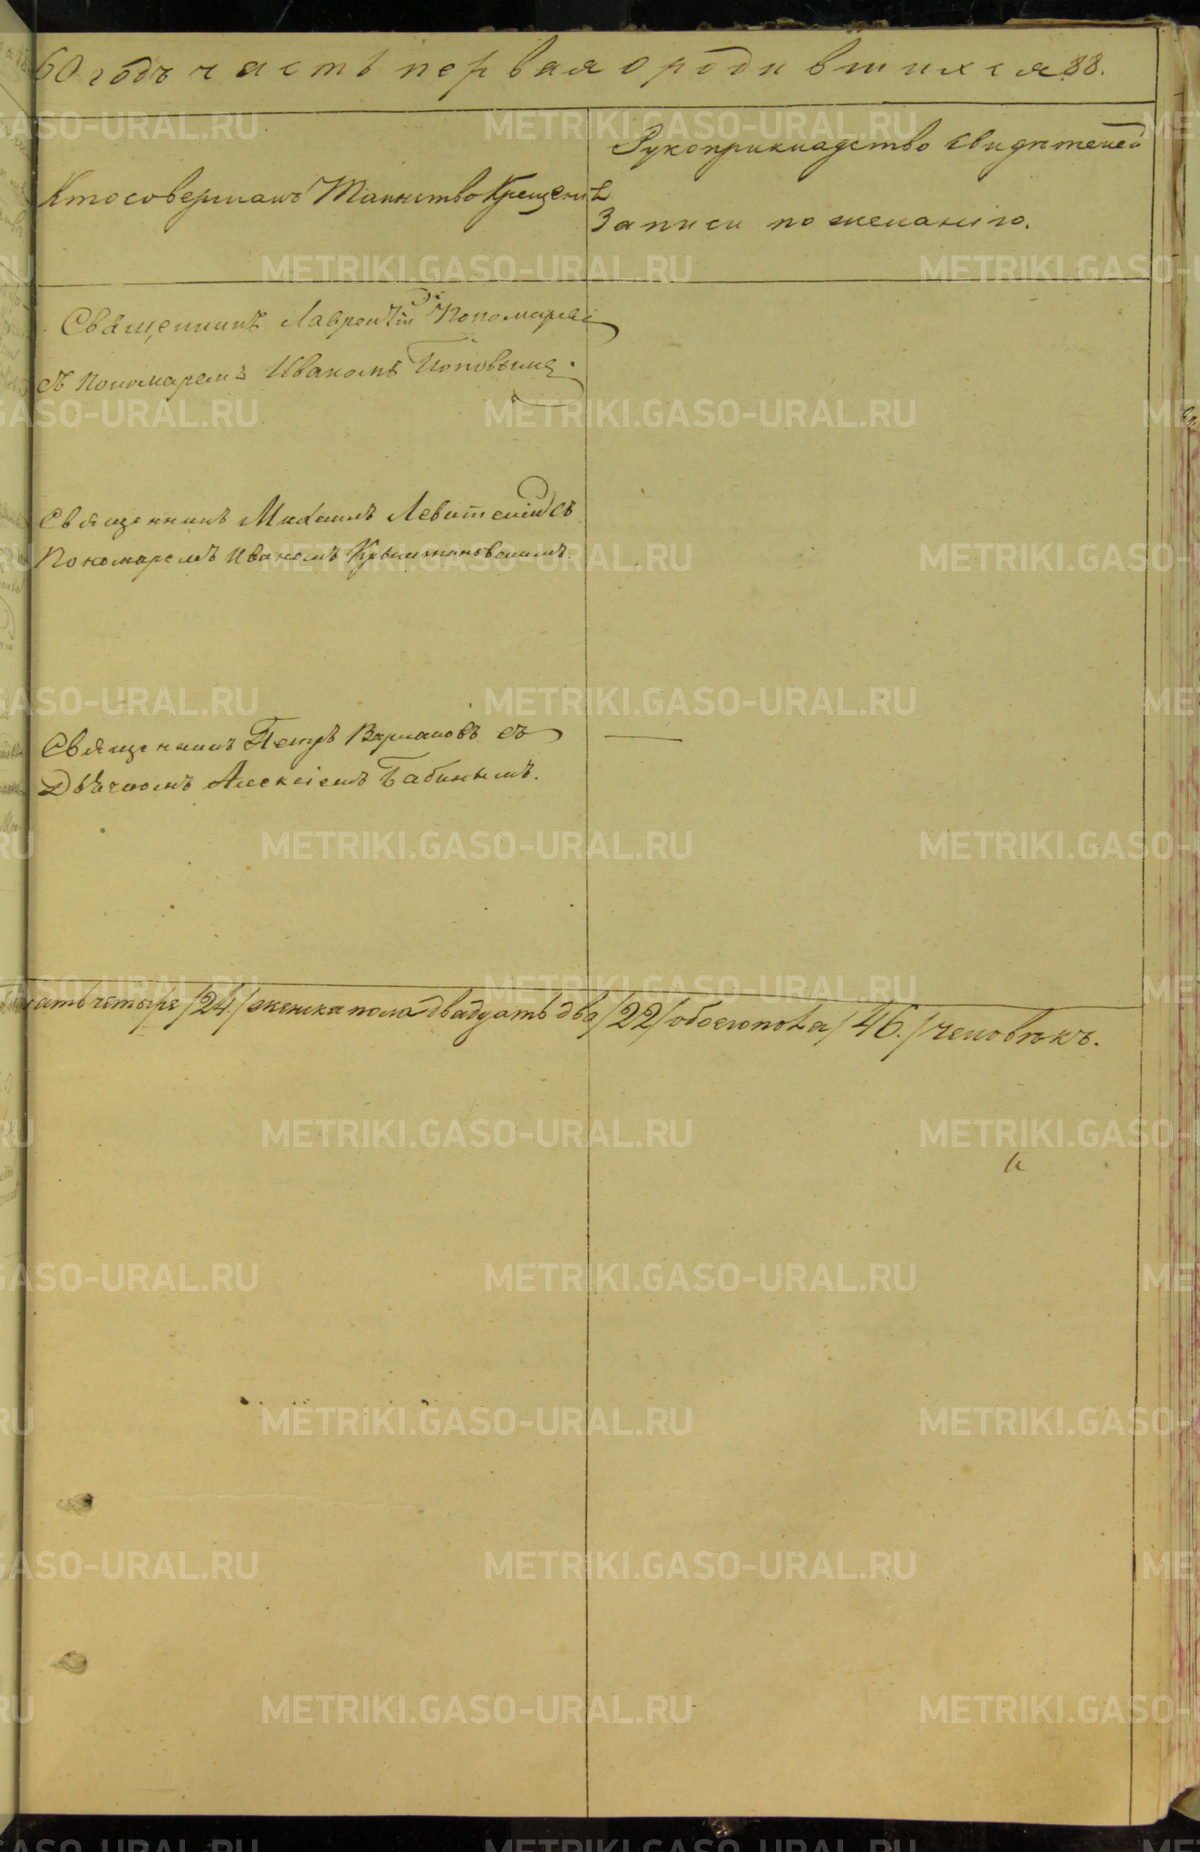 60 годъ часть первая о родившихся 88.
Кто совершалъ Таинство Крещенія
Рукоприкладство свидѣтелей
Записи по желанію.
Священникъ Лаврентій Пономаревъ
съ Пономаремъ Иваномъ Поповымъ.
Священникъ Михаилъ Левитскій съ
Пономаремъ Иваномъ
Священникъ Петръ Варлаковъ съ
Дьячкомъ Алексіемъ Бабинымъ.
ать четыре /24./ женска пола двадцать два /22/ обоего пола /46./ человѣкъ.
METRIKI.GASO-URAL.RU